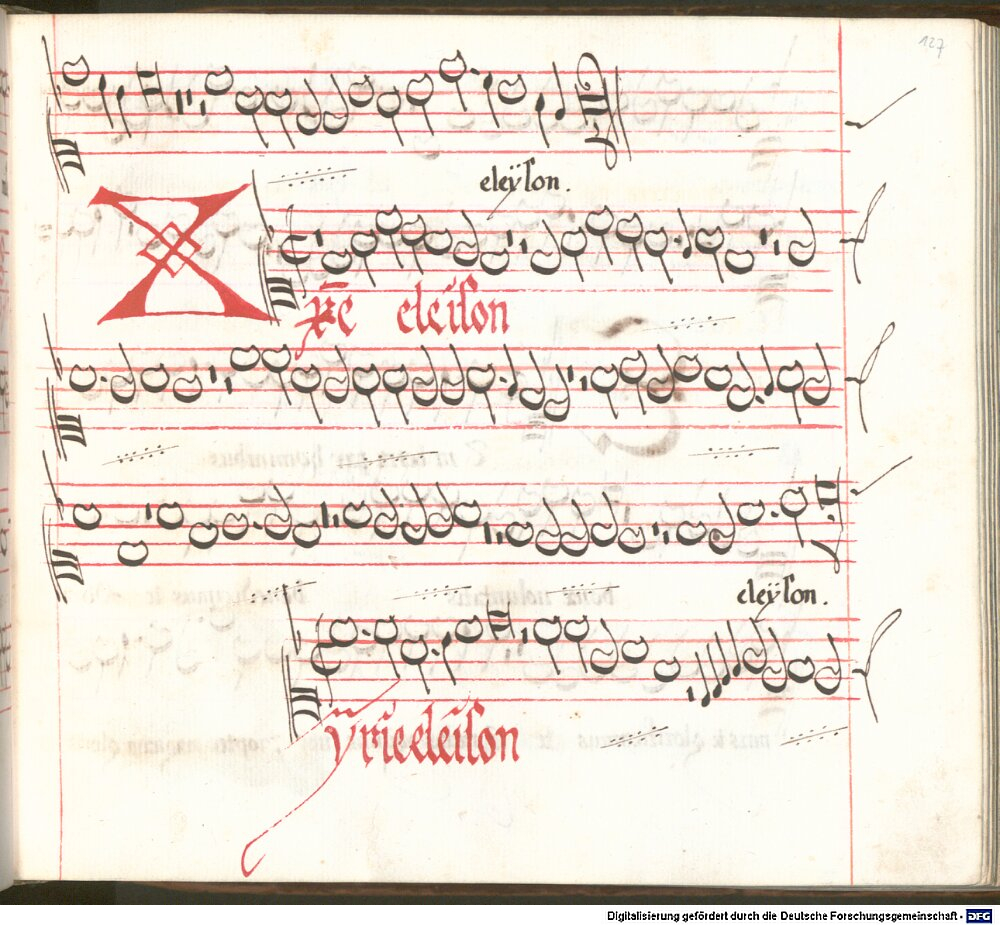 127
eleÿson.
Xp̄e eleÿson
eleÿson.
ÿrie eleÿson
Digitalisierung gefördert durch die Deutsche Forschungsgemeinschaft - DFG